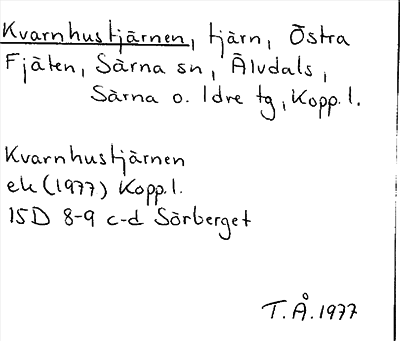 Kvarnhustjärnen, tjärn, Östra
Fjäten, Särna sn, Älvdals,
Särna o. Idre tg, Kopp. l.
Kvarnhustjärnen
ek (1977) Kopp. l.
15D 8-9 c-d Sörberget
T.Å. 1977